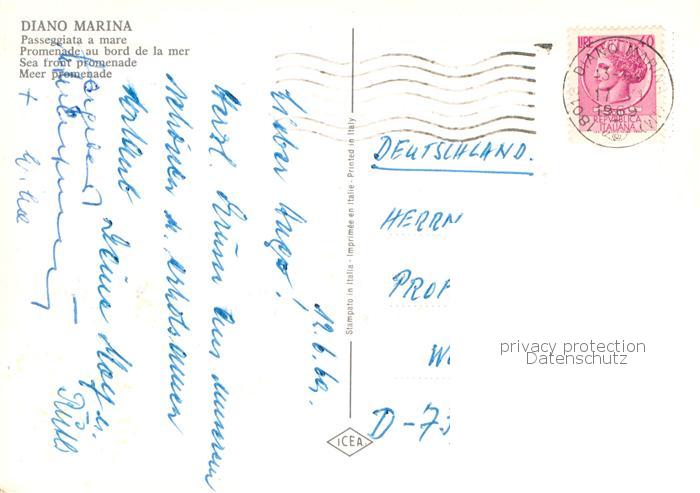 DIANO MARINA
Passeggiata a mare
Promenade au bord de la mer
Sea front promenade
Meer promenade
12.6.69.
Lieber Hugo!
Herzl. Grüsse aus unserem
schönen u. erholsamen
Urlaub
Deine
+
Stampato in Italia - Imprimée en Italie - Printed in Italy
ICEA
LIRE 40
REPVBBLICA
ITALIANA
DIANO MARINA
1969
DEUTSCHLAND.
HERRN
PROF
W
D-73
privacy protection
Datenschutz